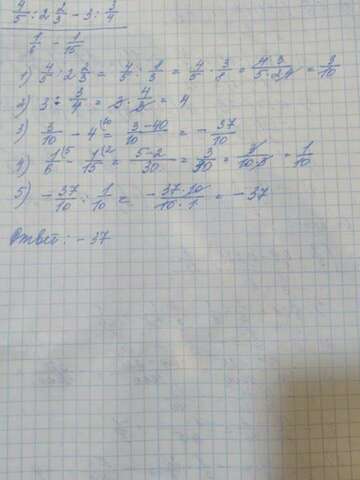 4/5 : 2 2/3 - 3 : 3/4
1/6 - 1/15
1) 4/5 : 2 2/3 = 4/5 : 1/3 = 4/5 · 3/1 = 4·3/5·2 = 3/10
2) 3 : 3/4 = 3 · 4/3 = 4
3) 3/10 - 4 (10 = 3-40/10 = - 37/10
4) 1/6 (5 - 1/15 (2 = 5-2/30 = 3/30 = 1/10 = 1/10
5) - 37/10 : 1/10 = - 37·10/10·1 = - 37
Ответ: - 37